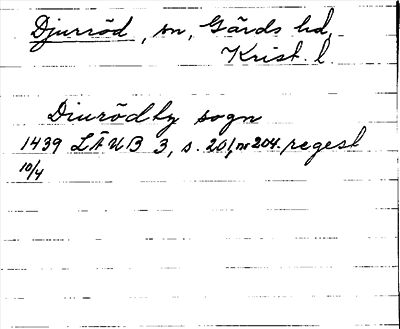 Djurröd, sn, Gärds hd,
Krist. l.
Diurödby sogn
1439 LÄUB 3, s. 201, nr 204. regest
10/4